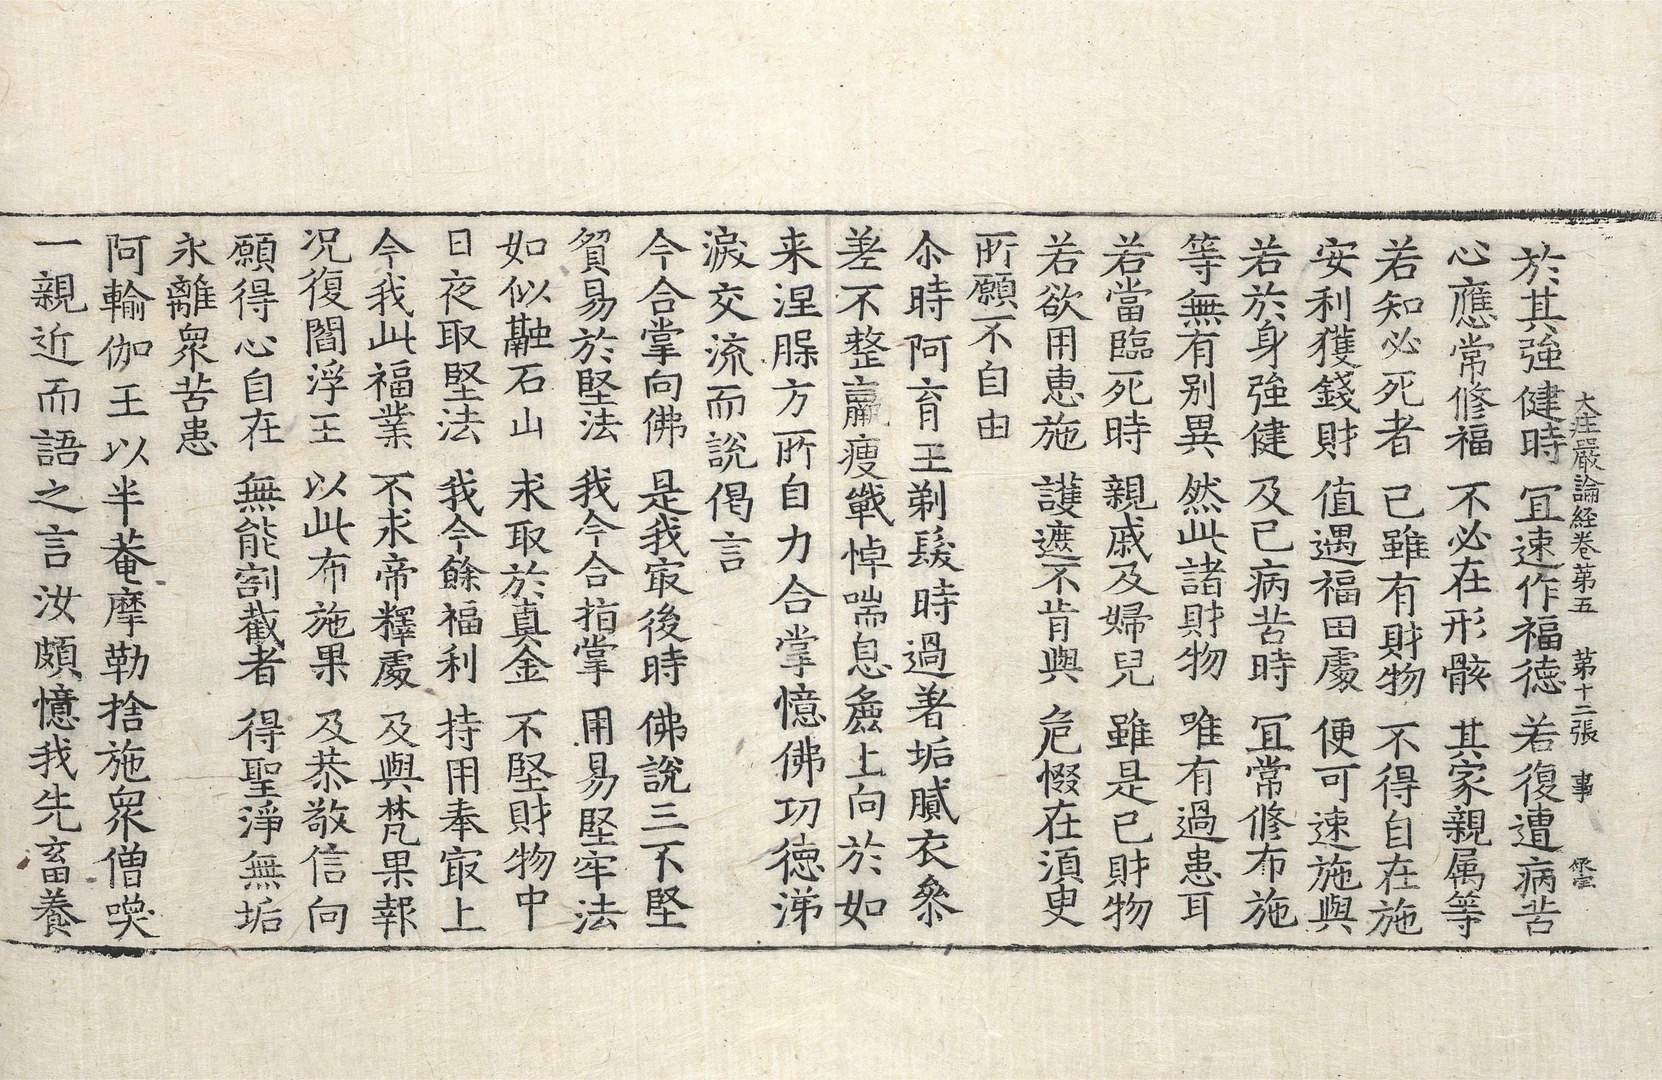 大莊嚴論経卷第五　第十二張　事
於其強健時　冝速作福德　若復遭病苦
心應常修福　不必在形骸　其家親属等
若知必死者　己雖有財物　不得自在施
安利獲錢財　值遇福田處　便可速施與
若於身強健　及己病苦時　冝常修布施
等無有別異　然此諸財物　唯有過患耳
若當臨死時　親戚及婦兒　雖是己財物
若欲用惠施　護遮不肯與　危惙在湏臾
所願不自由
尒時阿育王剃髮時過著垢膩衣叅
差不整羸瘦戰悼喘息麁上向於如
来涅槃方所自力合掌憶佛功德涕
淚交流而說偈言
今合掌向佛　是我㝡後時　佛說三不堅
貿易於堅法　我今合指掌　用易堅牢法
如似融石山　求取於真金　不堅財物中
日夜取堅法　我今餘福利　持用奉㝡上
今我此福業　不求帝釋處　及與梵果報
况復閻浮王　以此布施果　及恭敬信向
願得心自在　無能割截者　得聖淨無垢
永離衆苦患
阿輸伽王以半菴摩勒捨施衆僧喚
一親近而語之言汝頗憶我先畜養